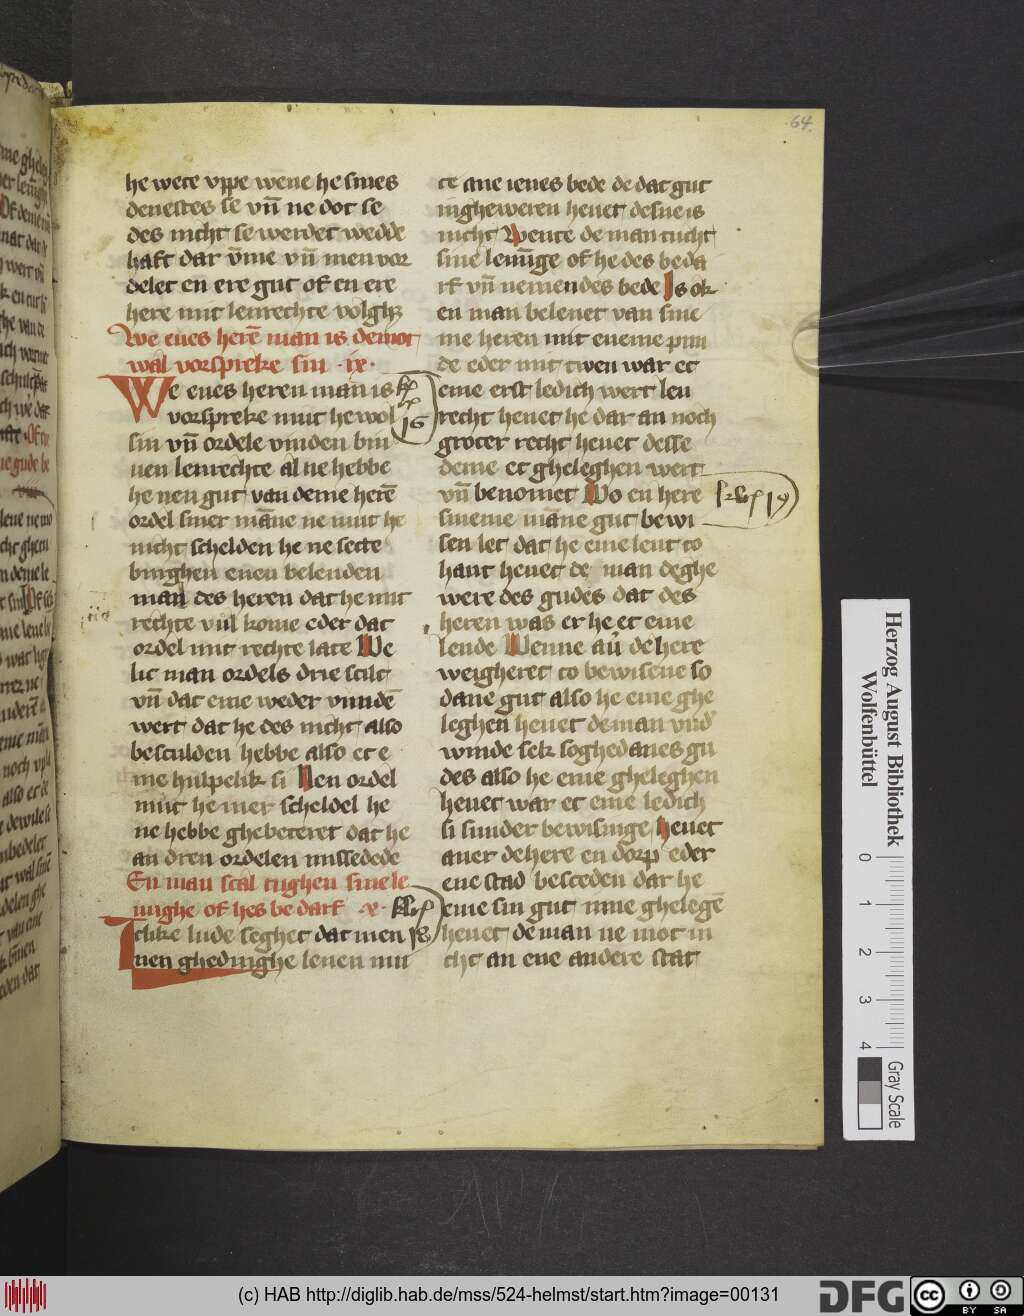 64.
he wete vppe wene he sines
denestes se vn̄ ne dot se
des nicht se werdet wedde
haft dar v̄me vn̄ men vor
delet en ere gut oft en ere
here mit lenrechte volghꝫ
We enes herē man is de mot
wal vorspreke sin · ix ·
We enes heren man is
vorspreke mut he wol
sin vn̄ ordele vinden bin
nen lenrechte al ne hebbe
he nen gut van deme herē
ordel siner mā̄ne ne mut he
nicht schelden he ne sette
binghen enen belenden
man des heren dat he mit
rechte vul kome eder dat
ordel mit rechte late We
lic man ordels drie scilt
vn̄ dat eme weder vundē
wert dat he des nicht also
besculden hebbe also et e
me hulpelik si Nen ordel
mut he mer scheldel he
ne hebbe ghebeteret dat he
an dren ordelen missedede
En man scal tughen sine le
ninghe of hes bedarf · x ·
Itlike lude seghet dat men
nen ghedinghe lenen mu
te ane ienes bede de dat gut
in gheweren heuet des ne is
nicht Wente de man tucht
sine lenīge of he des beda
rf vn̄ nemendes bede Is ok
en man belenet van sine
me heren mit eneme pun
de eder mit twen war et
eme erst ledich wert len
recht heuet he dar an noch
groter recht heuet desse
deme et gheleghen wert
vn̄ benomet Wo en here
sineme māne gut bewi
sen let dat he eme lent to
hant heuet de man deghe
were des gudes dat des
heren was er he et eme
lende Wenne au̓ de here
weigheret to bewisene so
dane gut also he eme ghe
leghen heuet de man vnd̓
winde sek soghedanes gu
des also he eme gheleghen
heuet war et eme ledich
si sunder bewisinge heuet
auer de here en dorp eder
ene stad besceden dar he
eme sin gut inne ghelegē
heuet de man ne mot in
cht an ene andere stat
16
18
19
Herzog August Bibliothek
Wolfenbüttel
0 1 2 3 4
Gray Scale
(c) HAB http://diglib.hab.de/mss/524-helmst/start.htm?image=00131
DFG
cc BY SA